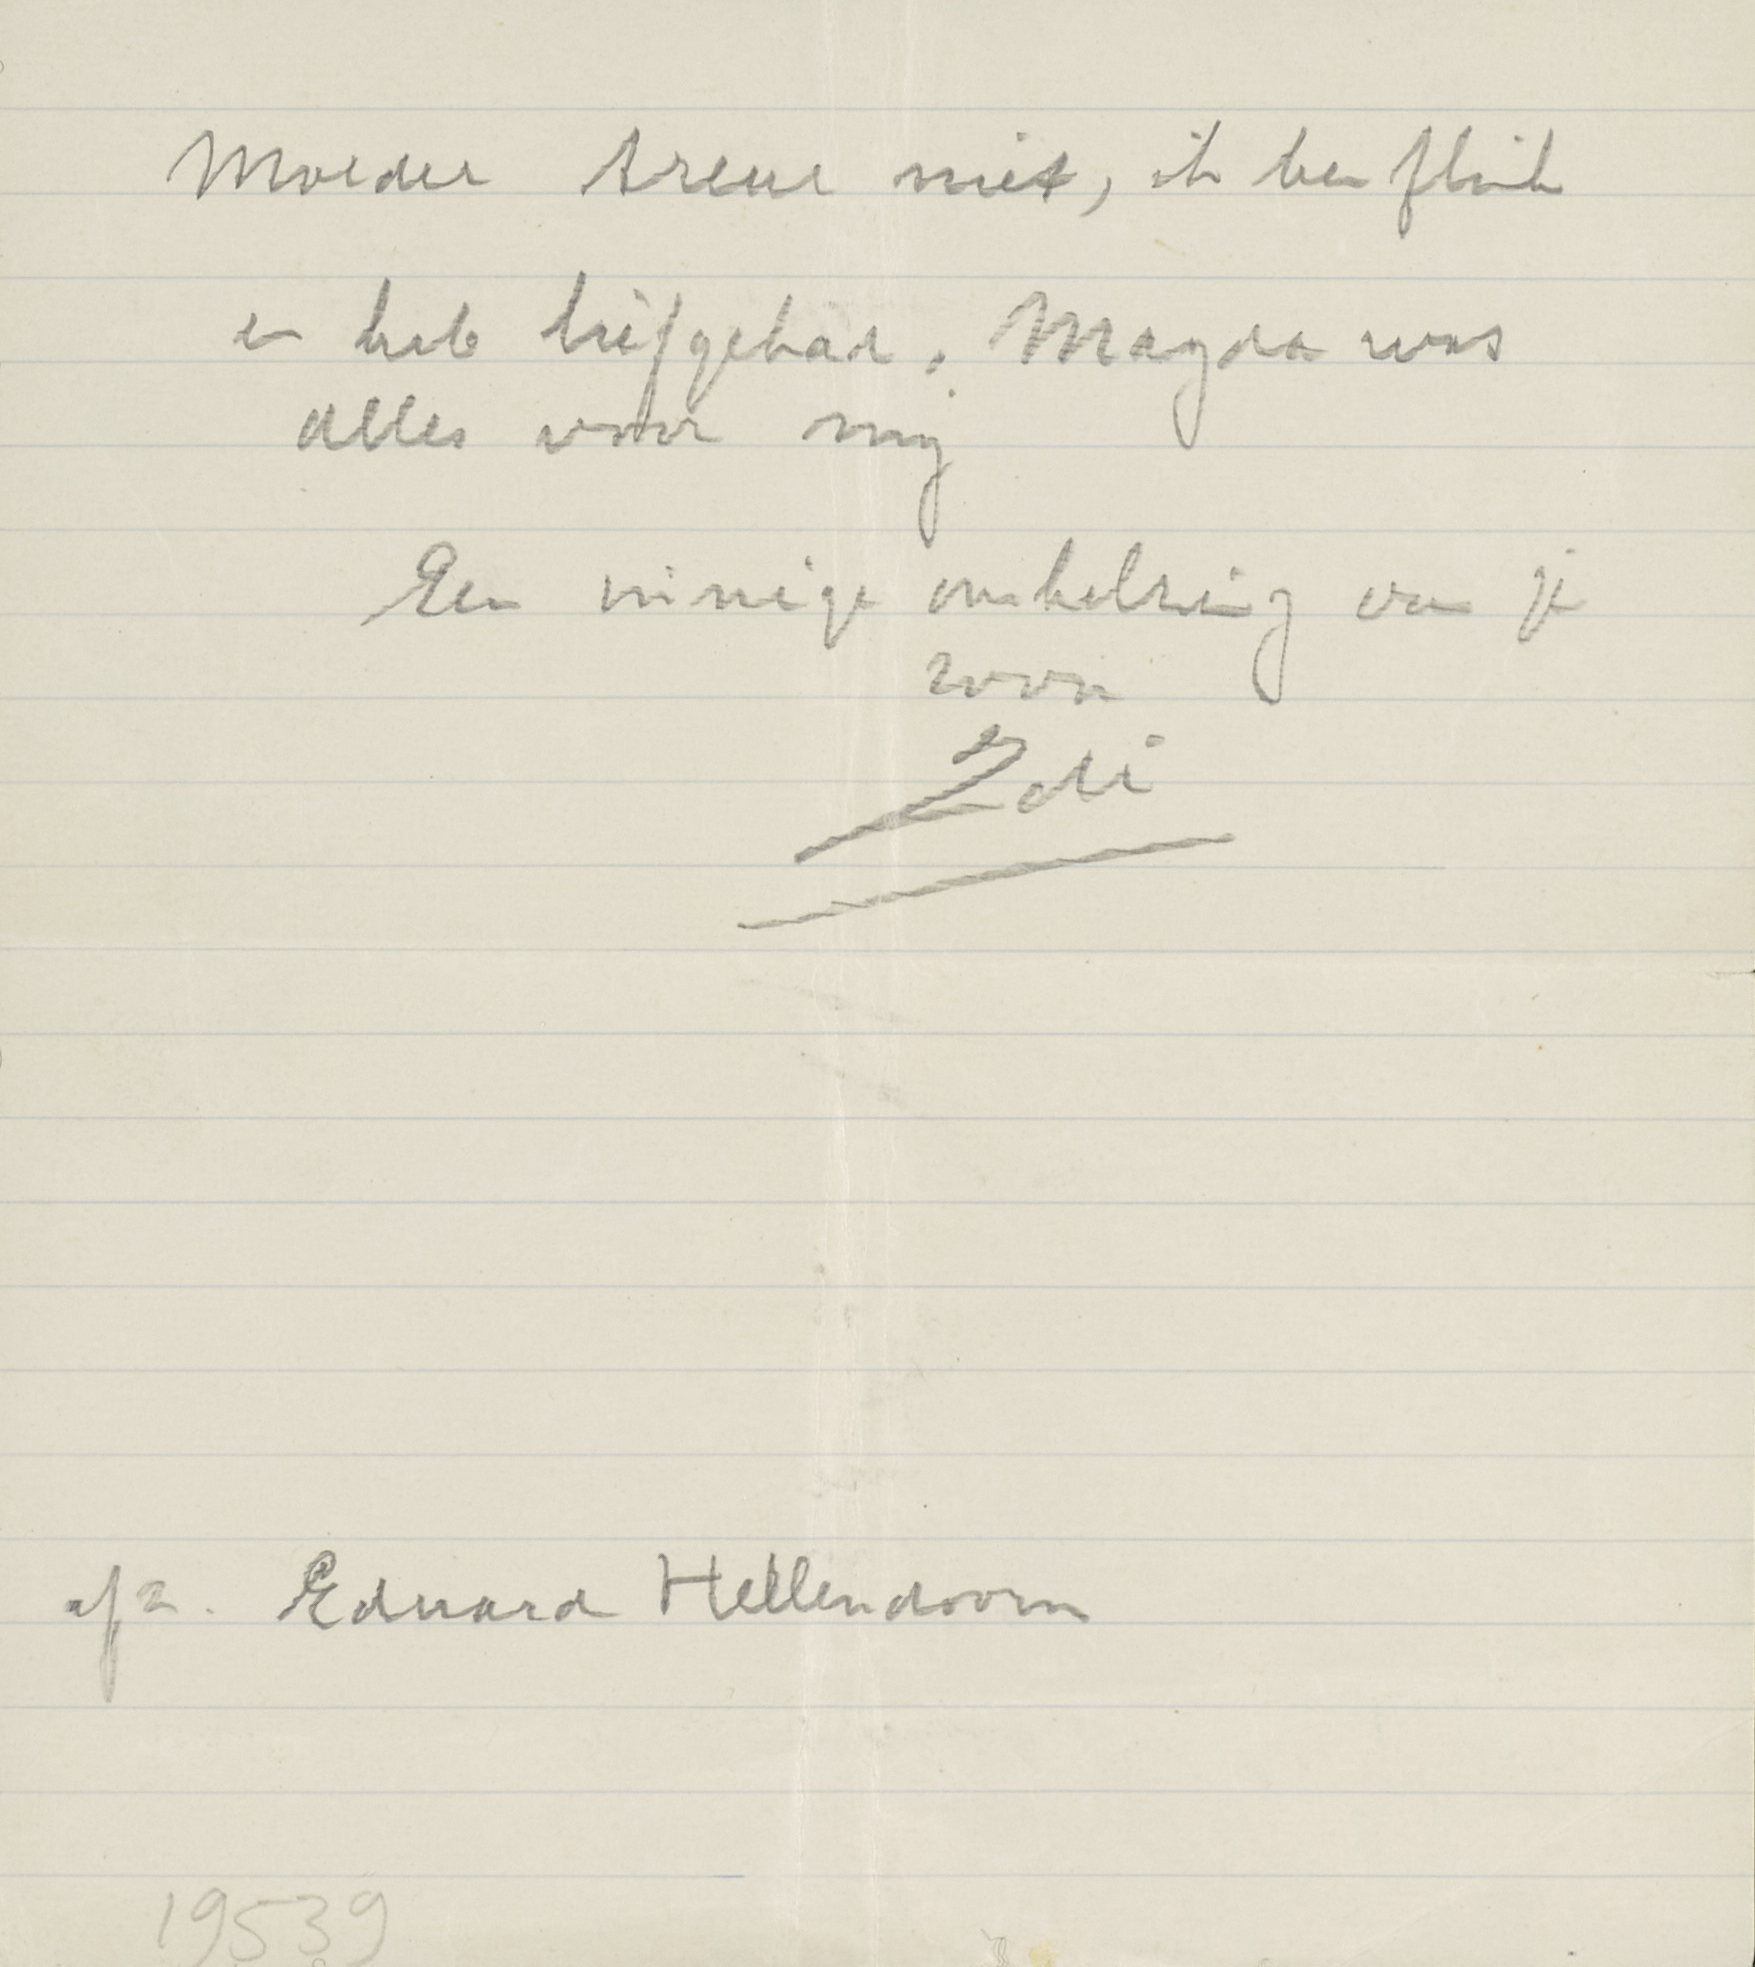 Moeder treur niet, ik ben flink
en heb liefgehad, Magda was
alles voor mij
Een innige omhelzing van je
zoon
Edi
afz. Eduard Hellendoorn
19539